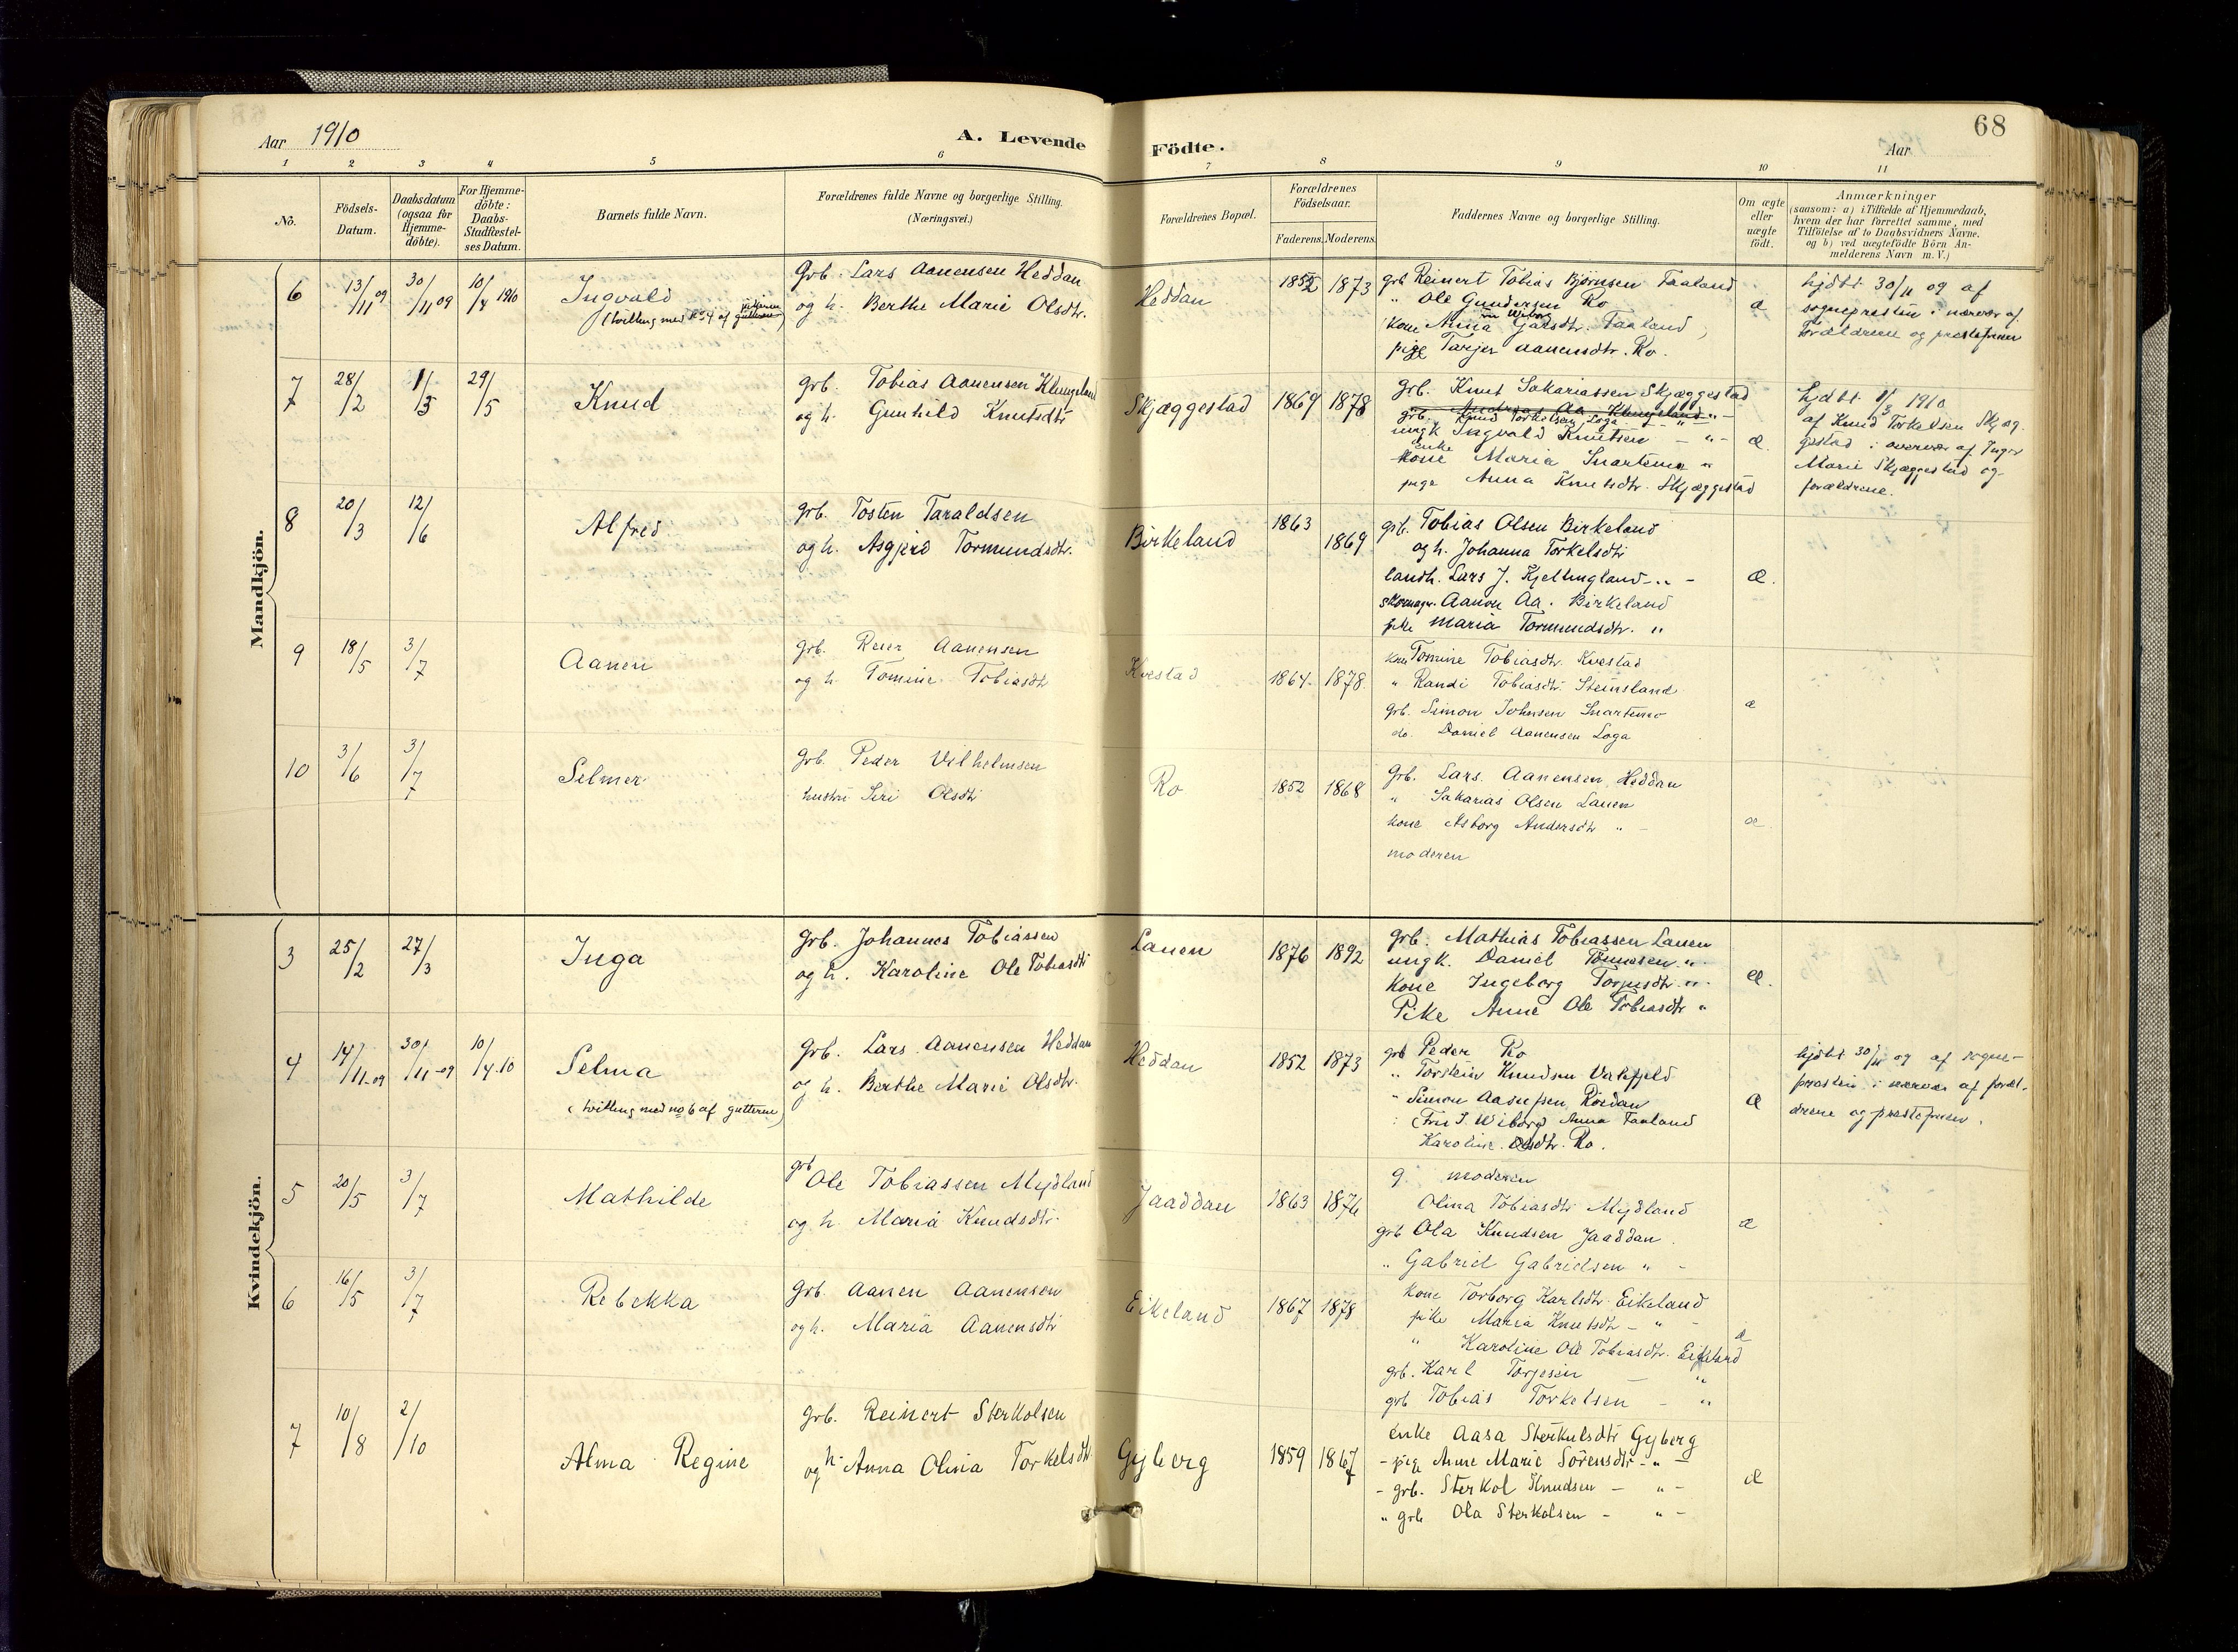 68
Aar 1910
A. Levende
Födte.
Aar
1 2 3 4 5 6 7 8 9 10 11
No.
Födsels-
Datum.
Daabsdatum
(ogsaa for
Hjemme-
döbte).
For Hjemme-
döbte:
Daabs-
Stadfæstel-
ses Datum.
Barnets fulde Navn.
Forældrenes fulde Navne og borgerlige Stilling.
(Næringsvei.)
Forældrenes Bopæl.
Forældrenes
Födselsaar.
Faderens. Moderens.
Faddernes Navne og borgerlige Stilling.
Om ægte
eller
uægte
födt.
Anmærkninger
(saasom: a) i Tilfælde af Hjemmedaab,
hvem der har forrettet samme, med
Tilföielse af to Daabsvidners Navne.
og b) ved uægtefödte Börn An-
melderens Navn m. V.)
Mandkjön.
6 13/11 09 30/11 09 10/4 1910
Ingvald
(tvilling med No 4 af pikerne)
Grb. Lars Aanensen Heddan
og h. Berthe Marie Olsdtr.
Heddan
1852 1873
grb Reinert Tobias Björnsen Faaland
" Ole Gundersen Ro
fru Wiborg
kone Anna Gjäsdtr. Faaland
pige Tarjer Aanensdtr. Ro.
æ
hjdbt. 30/11 09 af
sognepresten i nærvær af
Forældrene og prestefruen
7 28/2 1/3 29/5
Knud
grb. Tobias Aanensen Klungeland
og h. Gunhild Knutsdtr
Skjæggestad
1869 1878
grb. Knut Sakariassen Skjæggestad
grb. Andreas Aa. Klungeland "
grb. Knud Torkelsen Loga
ungk Ingvald Knutsen - " -
enke
kone Maria Snartemo "
pige Anna Knutsdtr. Skjæggestad
æ.
hjdbt. 1/3 1910
af Knud Torkelsen Skjæg-
gestad i overvær af Inger
Marie Skjæggestad og
forældrene.
8 20/3 12/6
Alfred
grb. Tosten Taraldsen
og h. Asgjerd Tormundsdtr.
Birkeland
1863
1869
grb. Tobias Olsen Birkeland
og h. Johanna Torkelsdtr
landh. Lars J. Kjellingland - " -
skomagr. Aanon Aa. Birkeland
pike Maria Tormundsdtr. "
æ.
9 18/5 3/7
Aanen
grb. Reier Aanensen
og h. Tomine Tobiasdtr
Kvestad
1864. 1878.
kone Tomine Tobiasdtr. Kvestad
" Randi Tobiasdtr. Steinsland
grb. Simon Johnsen Snartemo
do. Daniel Aanensen Loga
æ
10 3/6 3/7
Selmer
Grb. Peder Vilhelmsen
hustru Siri Olsdtr
Ro
1852 1868
Grb. Lars Aanensen Heddan
" Sakarias Olsen Lauen
kone Asborg Andersdtr " -
moderen
æ.
Kvindekjön.
3 25/2 27/3
Inga
Grb. Johannes Tobiassen
og h. Karoline Ole Tobiasdtr
Lauen
1876 1892
grb. Mathias Tobiassen Lauen
ungk. Daniel Tönnesen "
kone Ingeborg Torjusdtr. "
Pike Anne Ole Tobiasdtr "
æ.
4 14/11-09 30/11-09 10/4-10
Selma
(tvilling med no 6 af gutterne)
Grb. Lars Aanensen Heddan
og h. Berthe Marie Olsdtr.
Heddan
1852 1873
grb Peder Ro
" Torstein Knudsen Valefjeld
" Simon Aasulfsen Röidan
(Fru I. Wiborg Anna Faaland
Karoline Olsdtr. Ro.
æ
hjdbt 30/11 09 af sogne-
presten i nærvær af foræl-
drene og prestefruen.
5 20/5 3/7
Mathilde
grb Ole Tobiassen Mydland
og h. Maria Knudsdtr.
Jaaddan
1863 1876
g. moderen
Olina Tobiasdtr Mydland
grb Ola Knudsen Jaaddan
" Gabriel Gabrielsen " -
æ
6 16/5 3/7
Rebekka
grb. Aanen Aanensen
og h. Maria Aanensdtr
Eikeland
1867 1878
kone Torborg Karlsdtr. Eikeland
pike Maria Knutsdtr - " -
" Karoline Ole Tobiasdtr. Eikeland
grb. Karl Torjesen "
grb Tobias Torkelsen - "
æ
7 10/8 2/10
Alma Regine
grb. Reinert Sterkolsen
og h. Anna Olina Torkelsdtr
Gyberg
1859 1867
enke Aasa Sterkulsdtr Gyberg
- pige Anne Marie Sörensdtr - " -
- grb. Sterkol Knudsen - " -
" grb Ola Sterkolsen - " -
æ